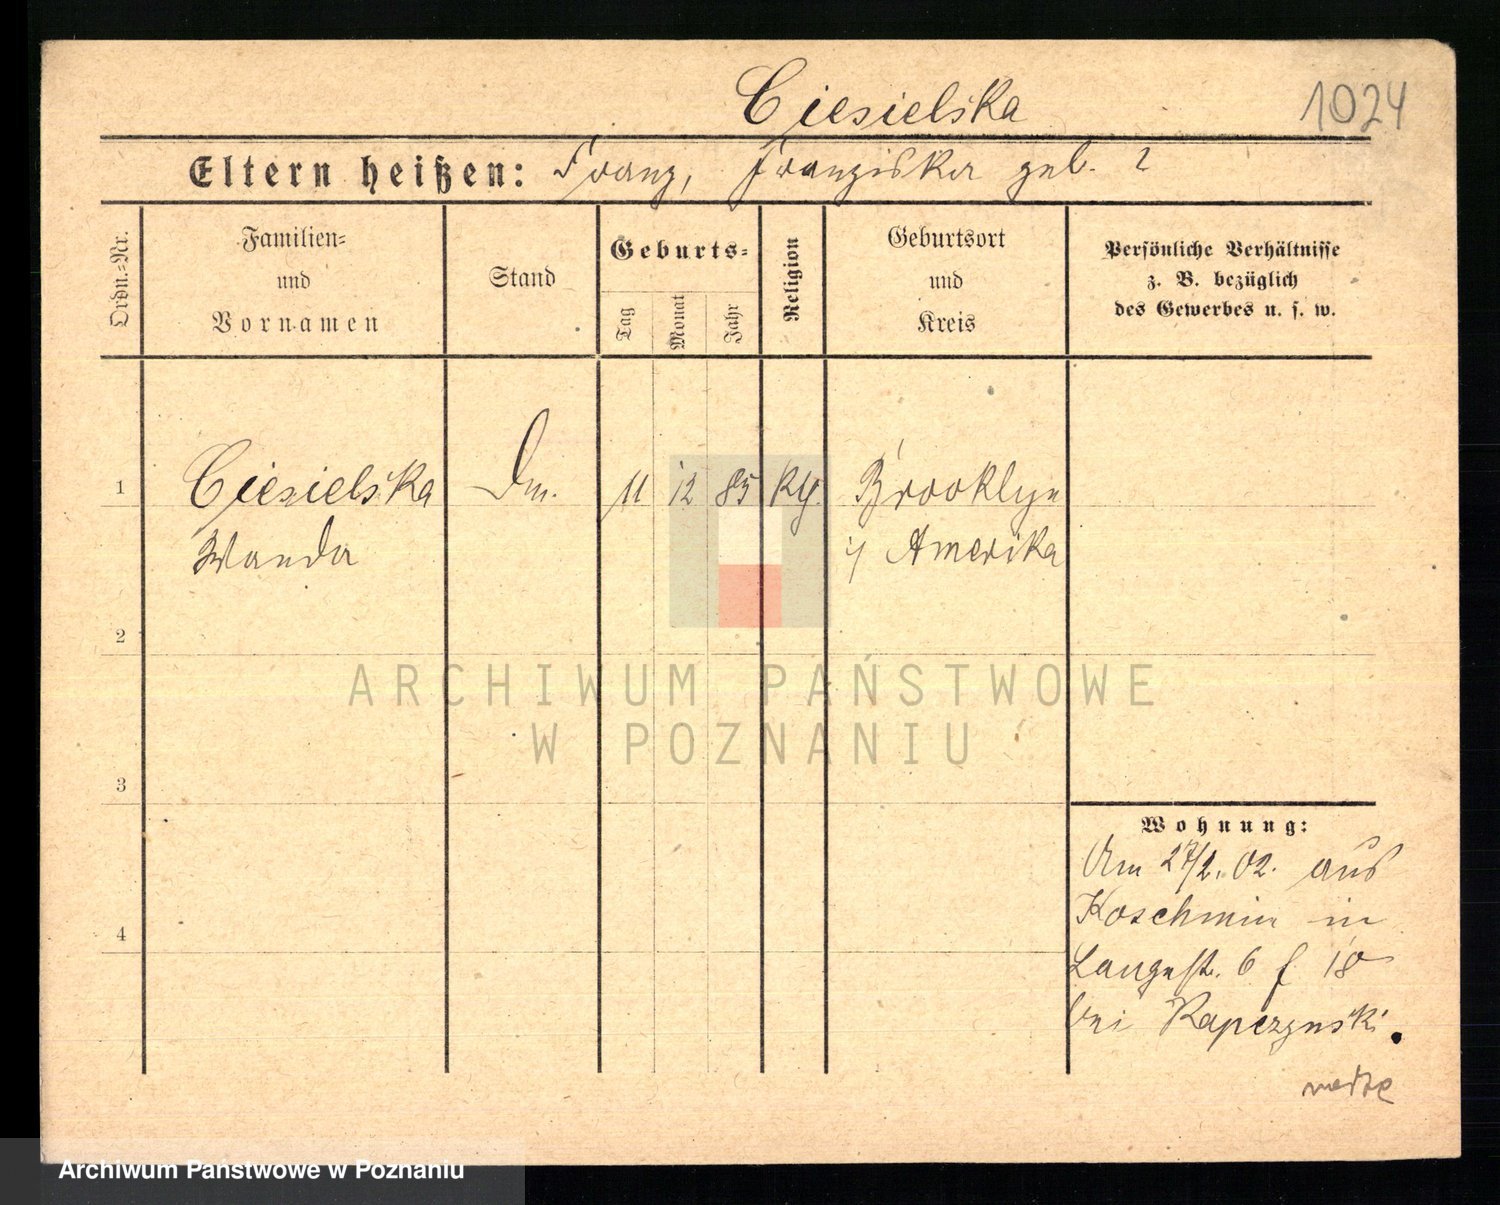 Ciesielska 1024
Eltern heißen: Franz, Franziska geb. ?
Ordn.-Nr.
Familien-
und
Vornamen
Stand
Geburts-
Tag Monat Jahr
Religion
Geburtsort
und
Kreis
Persönliche Verhältnisse
z. B. bezüglich
des Gewerbes u. s. w.
1 Ciesielska 11 12 85 Brooklyn
Wanda i/ Amerika
2
ARCHIWUM PAŃSTWOWE
W POZNANIU
3
Wohnung:
Am 27/2. 02. aus
Koschmin in
4
Langestr. 6 18
bei Rapczynski.
Archiwum Państwowe w Poznaniu